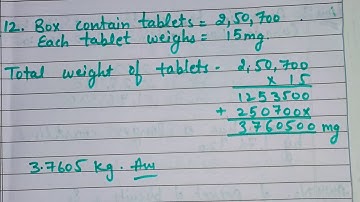 12. Box contain tablets = 2,50,700 .
Each tablet weighs = 15mg.
Total weight of tablets - 2,50,700
x 15
1253500
+ 250700x
3760500 mg
3.7605 kg. Ans